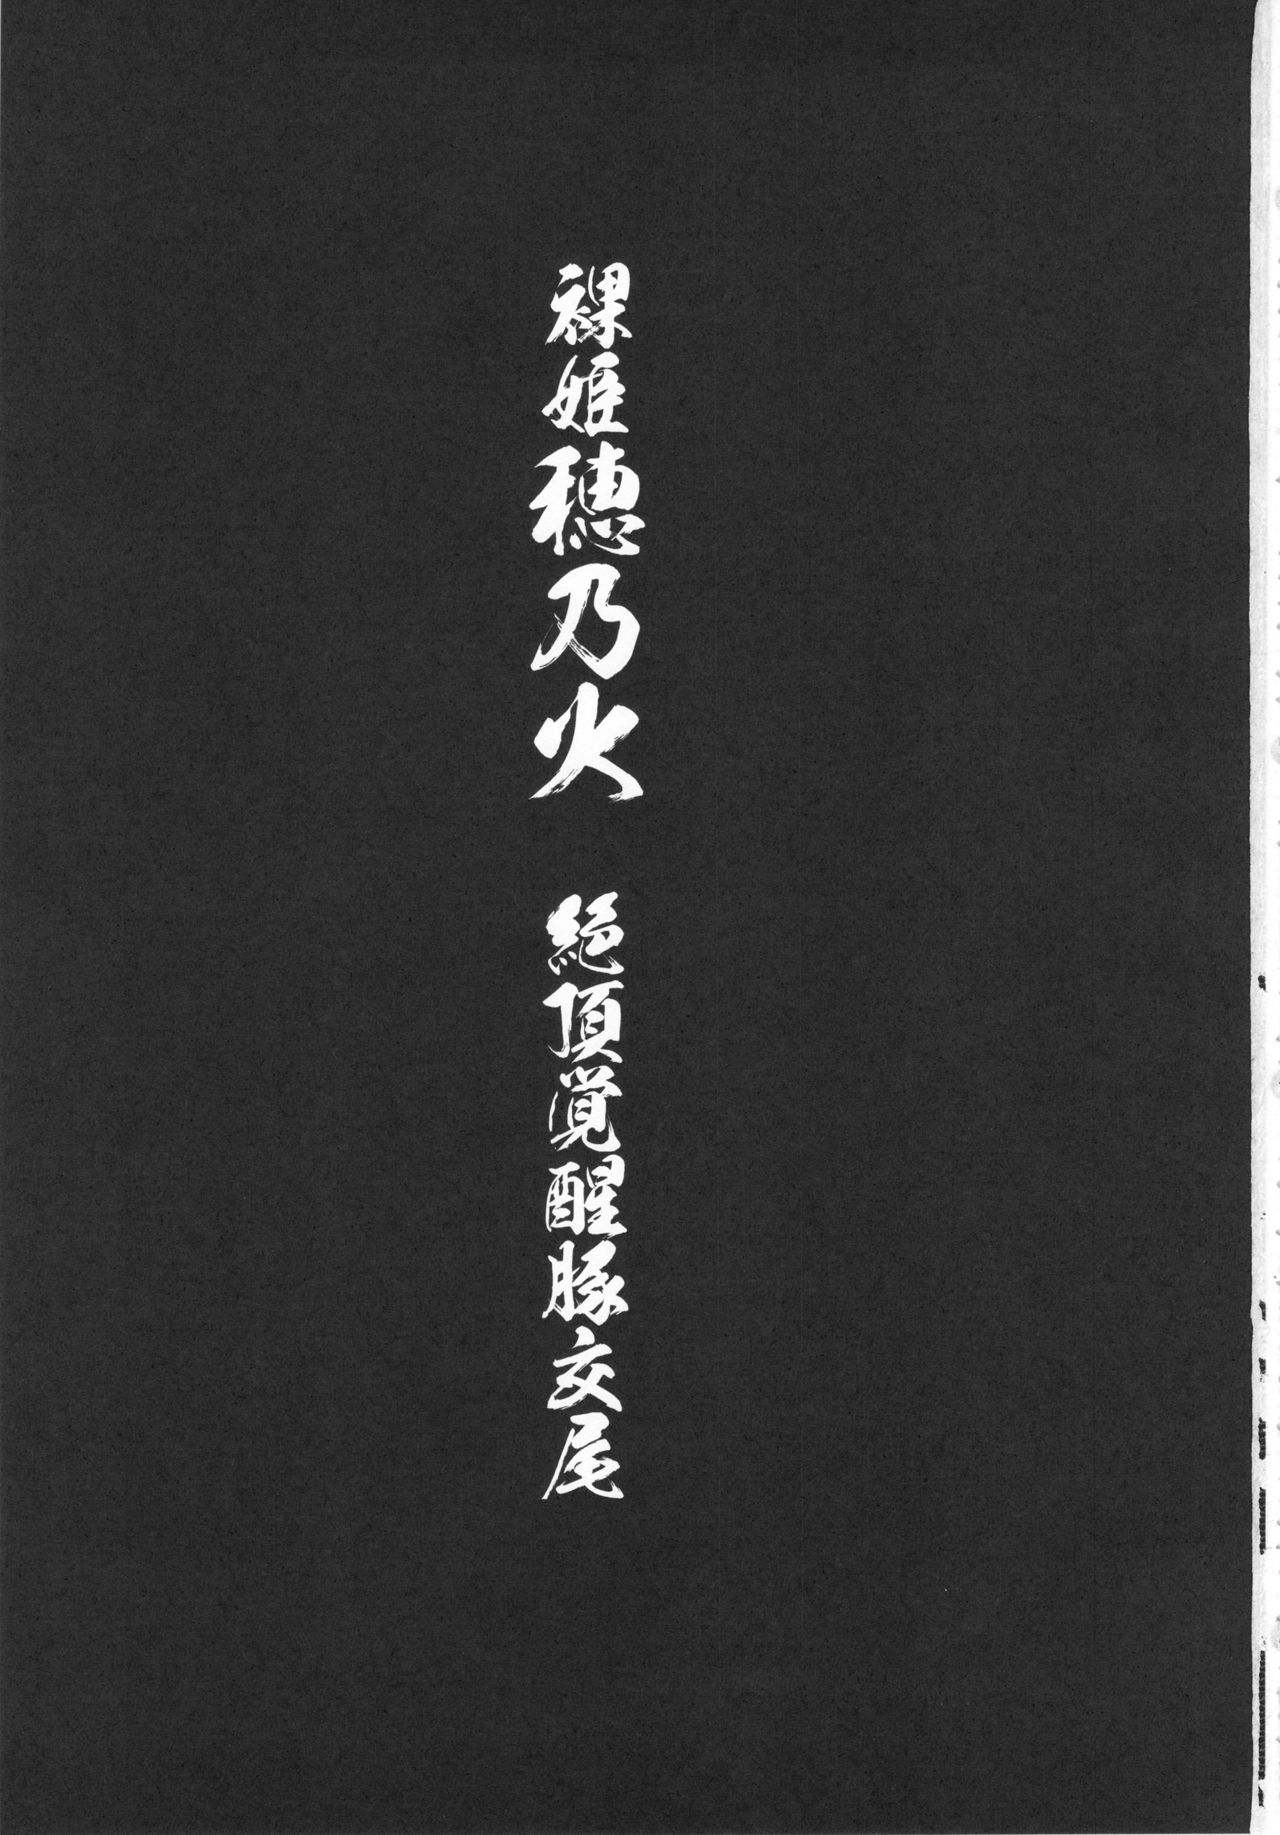 裸姫穂乃火　絶頂覚醒豚交尾